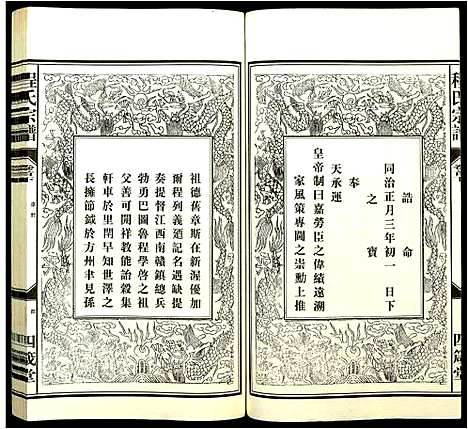 程氏宗譜
誥命
同治正月三年初一日下
之寶
奉
天承運
皇帝制曰嘉勞臣之偉績遠溯
家風策專閫之崇勳上推
四箴堂
程氏宗譜
祖德舊章斯在新渥優加
爾程列義廼記名遇缺提
奏提督江西南贛鎮總兵
勃勇巴圖魯程學啓之祖
父善可開祥教能詒穀集
軒車於里閈早知世澤之
長擁節鉞於方州聿見孫
四箴堂